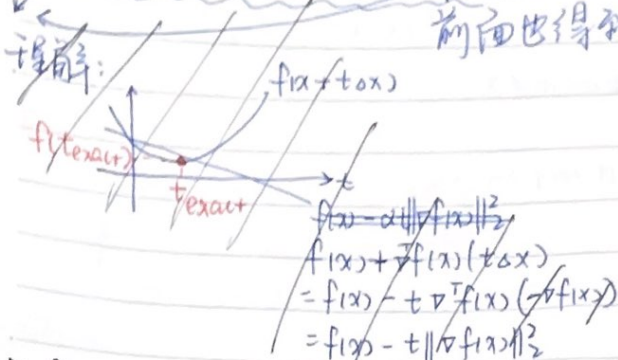 前面也得到
理解:
f(x+tΔx)
f(t_exact)
t
t_exact
f(x) - αt||∇f(x)||₂²
f(x) + ∇ᵀf(x)(tΔx)
= f(x) - t∇ᵀf(x)(-∇f(x))
= f(x) - t||∇f(x)||₂²